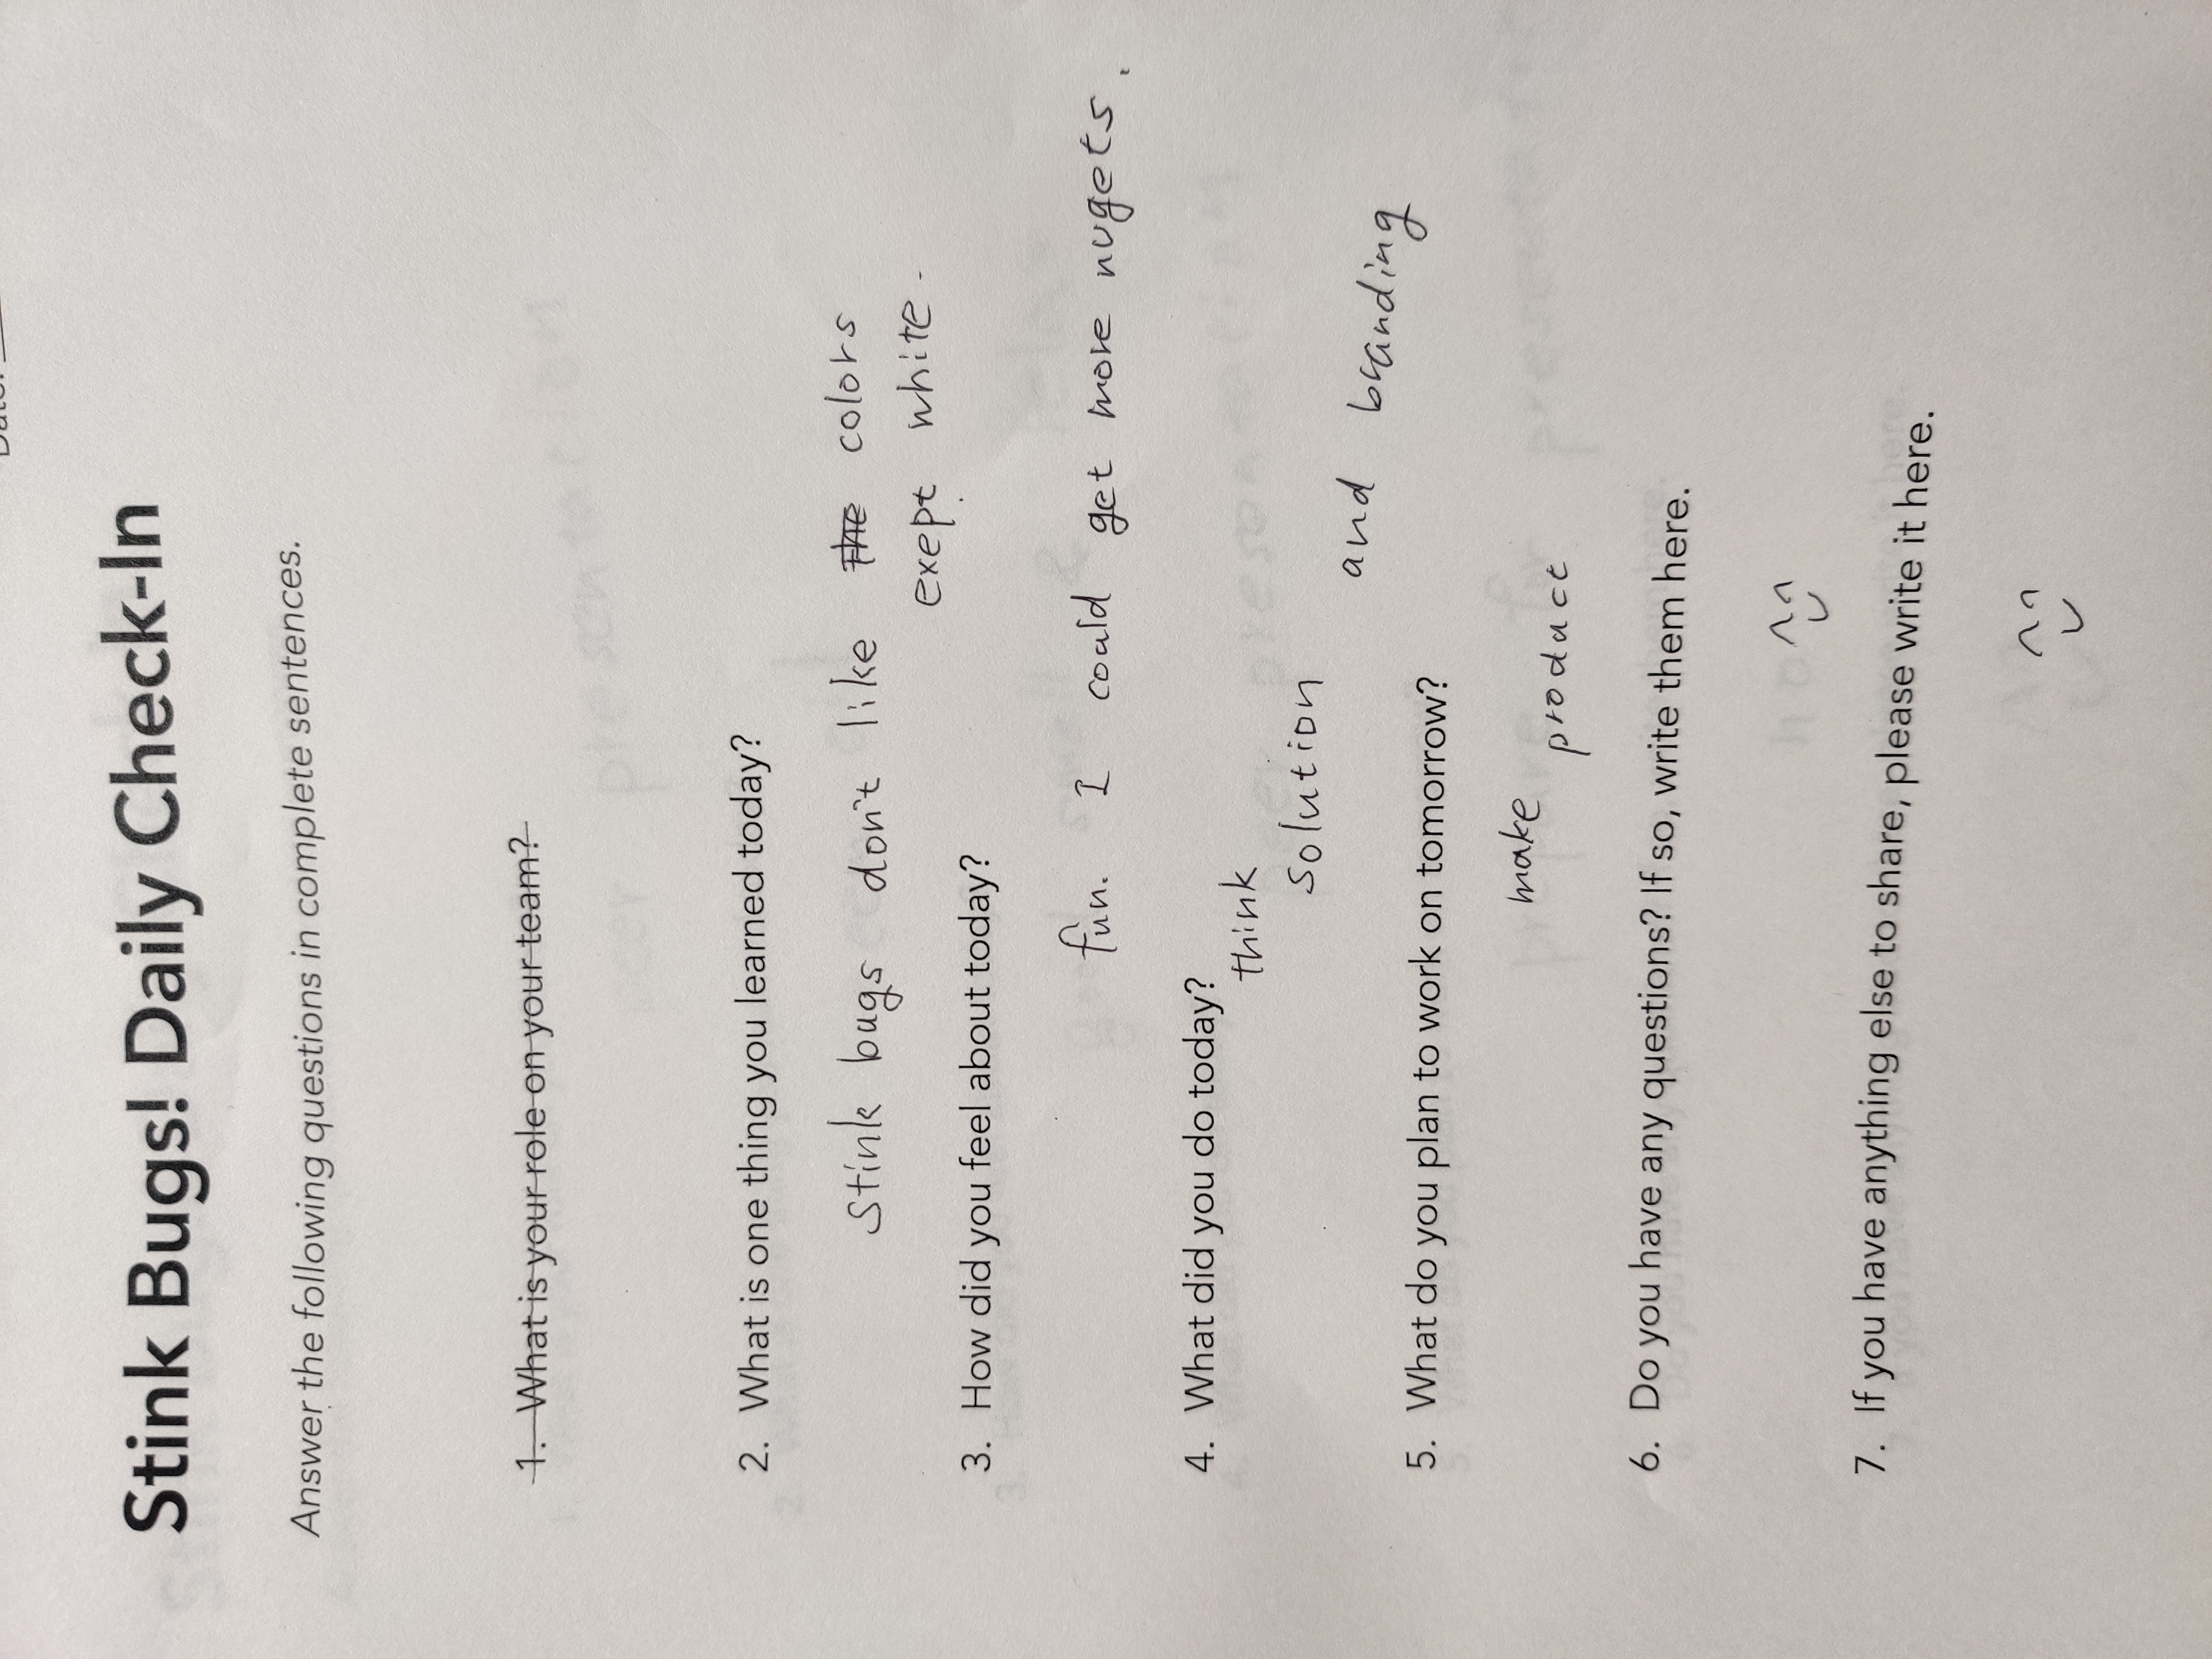 Date:
Stink Bugs! Daily Check-In
Answer the following questions in complete sentences.
1. What is your role on your team?
peer presentation
2. What is one thing you learned today?
Stink bugs don't like the colors
exept white.
3. How did you feel about today?
fun. I could get more nugets.
4. What did you do today?
think
solution
and branding
5. What do you plan to work on tomorrow?
make
product
6. Do you have any questions? If so, write them here.
7. If you have anything else to share, please write it here.